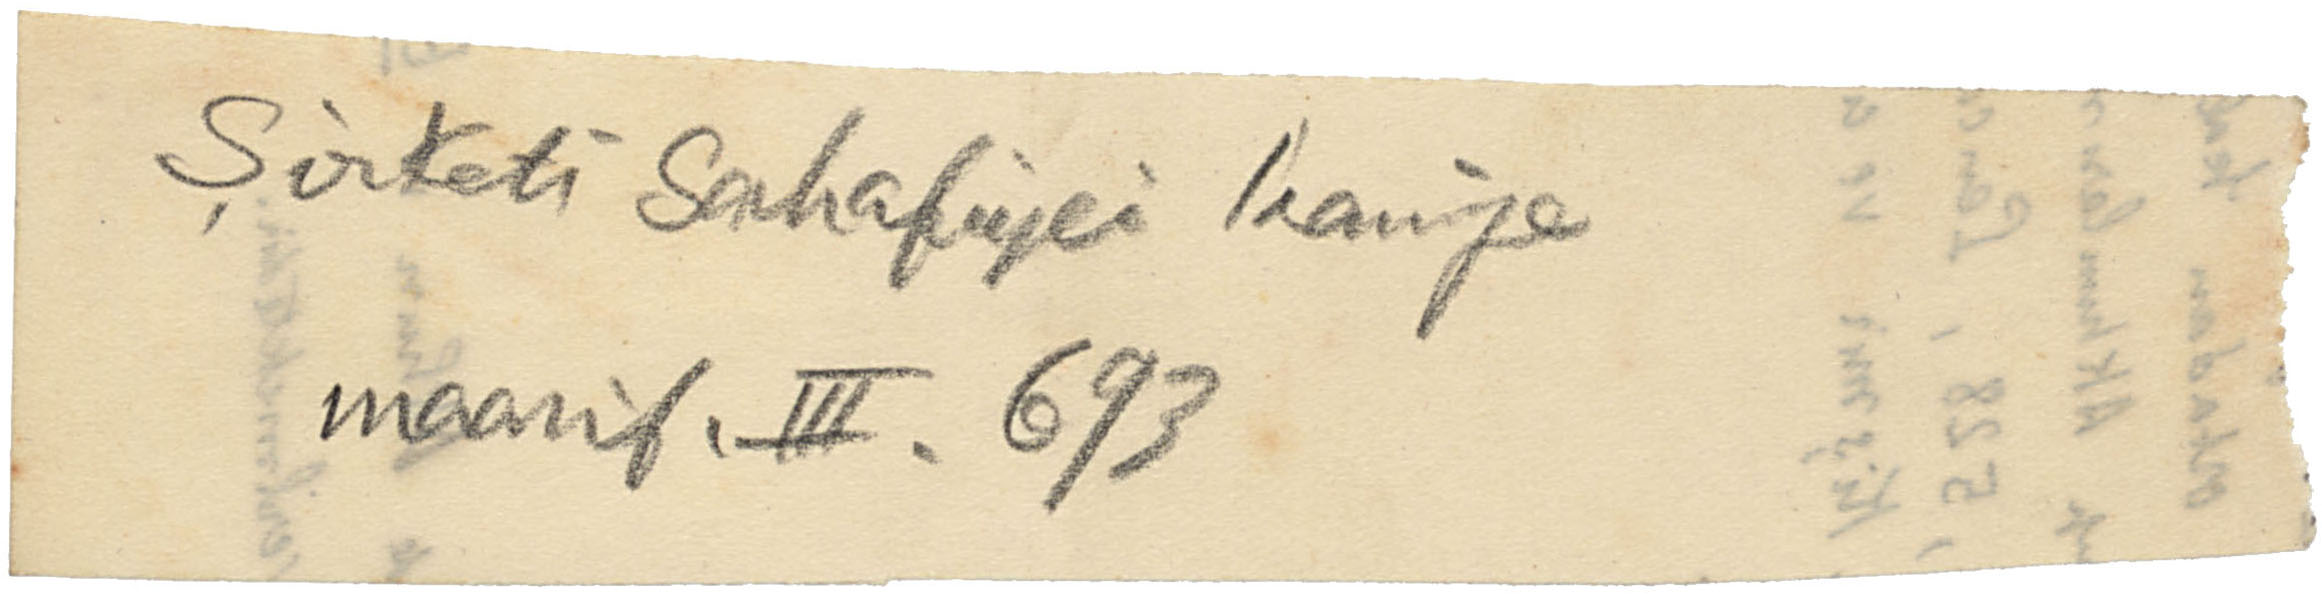 Şirketi Sahafiyei İraniye
maarif. III. 693